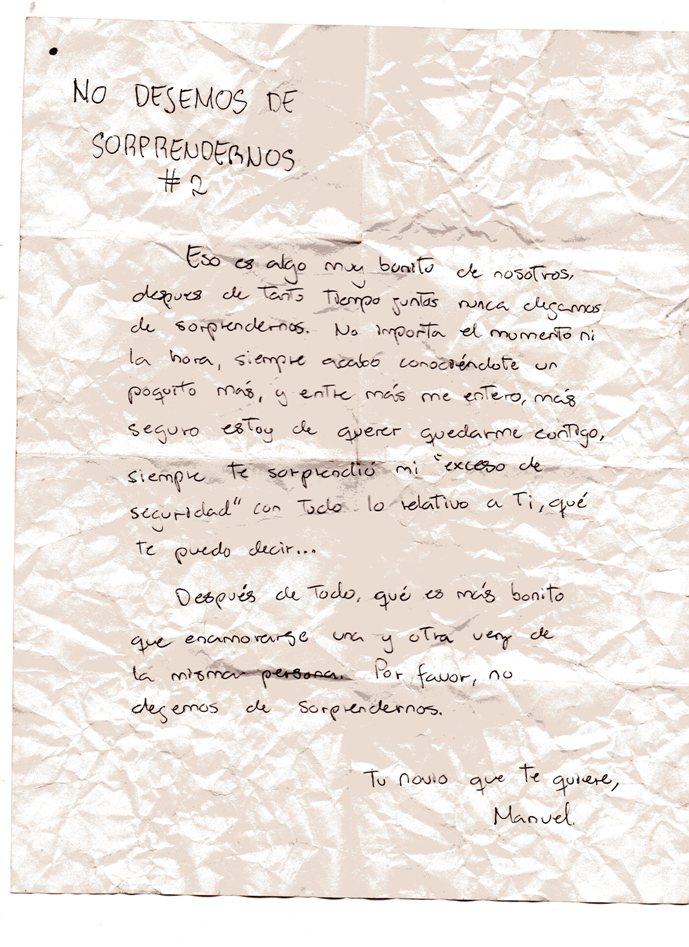 NO DEJEMOS DE
SORPRENDERNOS
#2
Eso es algo muy bonito de nosotros,
despues de tanto tiempo juntos nunca dejamos
de sorprendernos. No importa el momento ni
la hora, siempre acabo conociéndote un
poquito más, y entre más me entero, más
seguro estoy de querer quedarme contigo,
siempre te sorprendió mi "exceso de
seguridad" con todo lo relativo a ti, qué
te puedo decir...
Después de todo, qué es más bonito
que enamorarse una y otra vez de
la misma persona. Por favor, no
dejemos de sorprendernos.
Tu novio que te quiere,
Manuel.